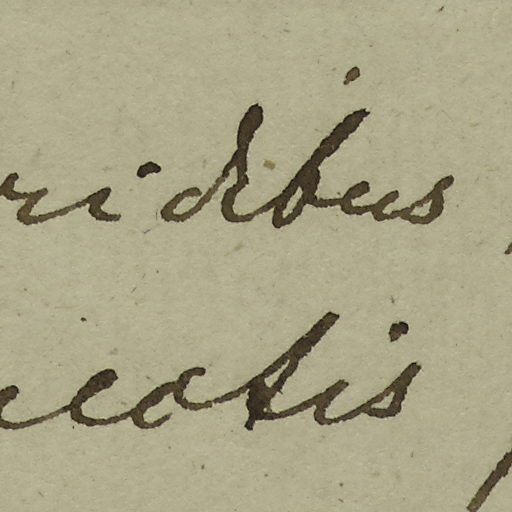 ridibus
catis